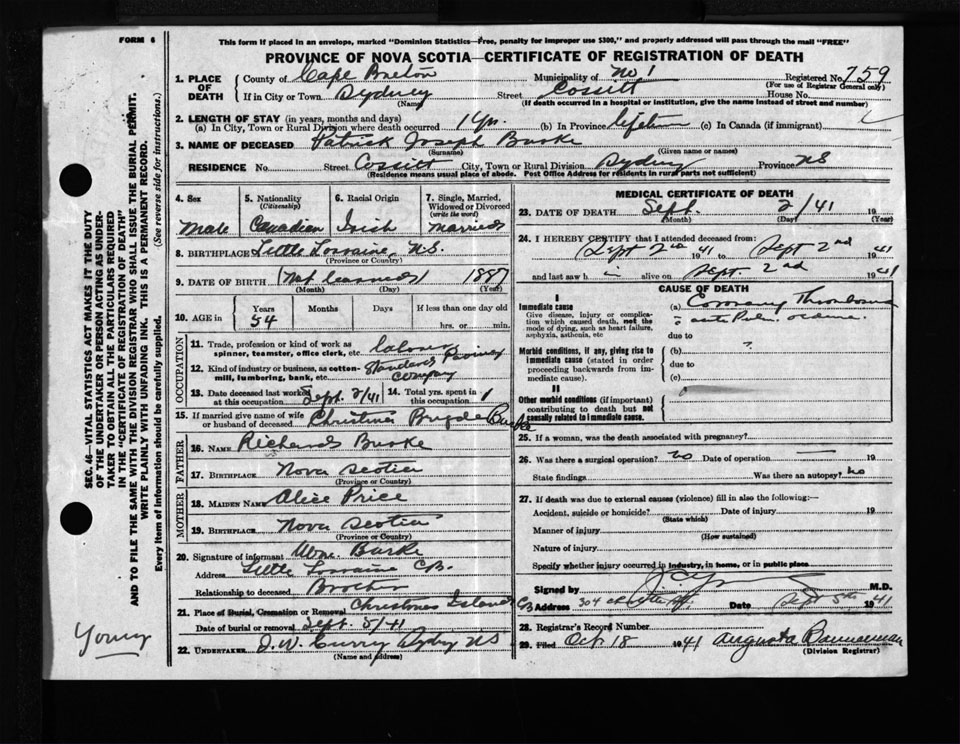 FORM 6
This form if placed in an envelope, marked "Dominion Statistics—Free, penalty for improper use $300," and properly addressed will pass through the mail "FREE"
PROVINCE OF NOVA SCOTIA—CERTIFICATE OF REGISTRATION OF DEATH
1. PLACE OF DEATH County of Cape Breton Municipality of No 1 Registered No. 759
(For use of Registrar General only)
If in City or Town Sydney Street Cossitt House No.
(Name) (If death occurred in a hospital or institution, give the name instead of street and number)
2. LENGTH OF STAY (in years, months and days)
(a) In City, Town or Rural Division where death occurred 1 yr. (b) In Province lifetime (c) In Canada (if immigrant)
3. NAME OF DECEASED Patrick Joseph Burke
(Surname) (Given name or names)
RESIDENCE No. Street Cossitt City, Town or Rural Division Sydney Province NS
(Residence means usual place of abode. Post Office Address for residents in rural parts not sufficient)
4. Sex Male
5. Nationality (Citizenship) Canadian
6. Racial Origin Irish
7. Single, Married, Widowed or Divorced (write the word) Married
8. BIRTHPLACE Little Lorraine, N.S.
(Province or Country)
9. DATE OF BIRTH (Not 1887
(Month) (Day) (Year)
10. AGE in Years Months Days If less than one day old
54 hrs. or min.
OCCUPATION
11. Trade, profession or kind of work as spinner, teamster, office clerk, etc. labour
12. Kind of industry or business, as cotton-mill, lumbering, bank, etc. Standard Paving Company
13. Date deceased last worked at this occupation Sept. 2/41 14. Total yrs. spent in this occupation 1
15. If married give name of wife or husband of deceased Christina Burke
FATHER
16. NAME Richard Burke
17. BIRTHPLACE Nova Scotia
(Province or Country)
MOTHER
18. MAIDEN NAME Alice Price
19. BIRTHPLACE Nova Scotia
(Province or Country)
20. Signature of informant Burke
Address Little Lorraine C.B.
Relationship to deceased Brother
21. Place of Burial, Cremation or Removal Christmas Island CB
Date of burial or removal Sept. 5/41
22. UNDERTAKER J.W. Curry Sydney NS
(Name and address)
MEDICAL CERTIFICATE OF DEATH
23. DATE OF DEATH Sept. 2/41 19
(Month) (Day) (Year)
24. I HEREBY CERTIFY that I attended deceased from:
Sept 2nd 1941 to Sept 2nd 1941
and last saw h i alive on Sept 2nd 1941
CAUSE OF DEATH
I
Immediate cause
Give disease, injury or complication which caused death, not the mode of dying, such as heart failure, asphyxia, asthenia, etc
(a) Coronary Thrombosis
due to
Morbid conditions, if any, giving rise to immediate cause (stated in order proceeding backwards from immediate cause).
(b) ?
due to
(c)
II
Other morbid conditions (if important) contributing to death but not causally related to immediate cause.
25. If a woman, was the death associated with pregnancy?
26. Was there a surgical operation? no Date of operation — 19
State findings Was there an autopsy? no
27. If death was due to external causes (violence) fill in also the following:—
Accident, suicide or homicide? Date of injury 19
(State which)
Manner of injury
(How sustained)
Nature of injury
Specify whether injury occurred in industry, in home, or in public place
Signed by M.D.
Address 304 Charlotte St Date Sept 5th 1941
28. Registrar's Record Number
29. Filed Oct 18 1941 Augusta Bannerman
(Division Registrar)
SEC. 46—VITAL STATISTICS ACT MAKES IT THE DUTY
OF THE UNDERTAKER OR PERSON ACTING AS UNDER-
TAKER TO OBTAIN ALL THE PARTICULARS REQUIRED
IN THE "CERTIFICATE OF REGISTRATION OF DEATH"
AND TO FILE THE SAME WITH THE DIVISION REGISTRAR WHO SHALL ISSUE THE BURIAL PERMIT.
WRITE PLAINLY WITH UNFADING INK. THIS IS A PERMANENT RECORD.
Every item of information should be carefully supplied. (See reverse side for instructions.)
Young